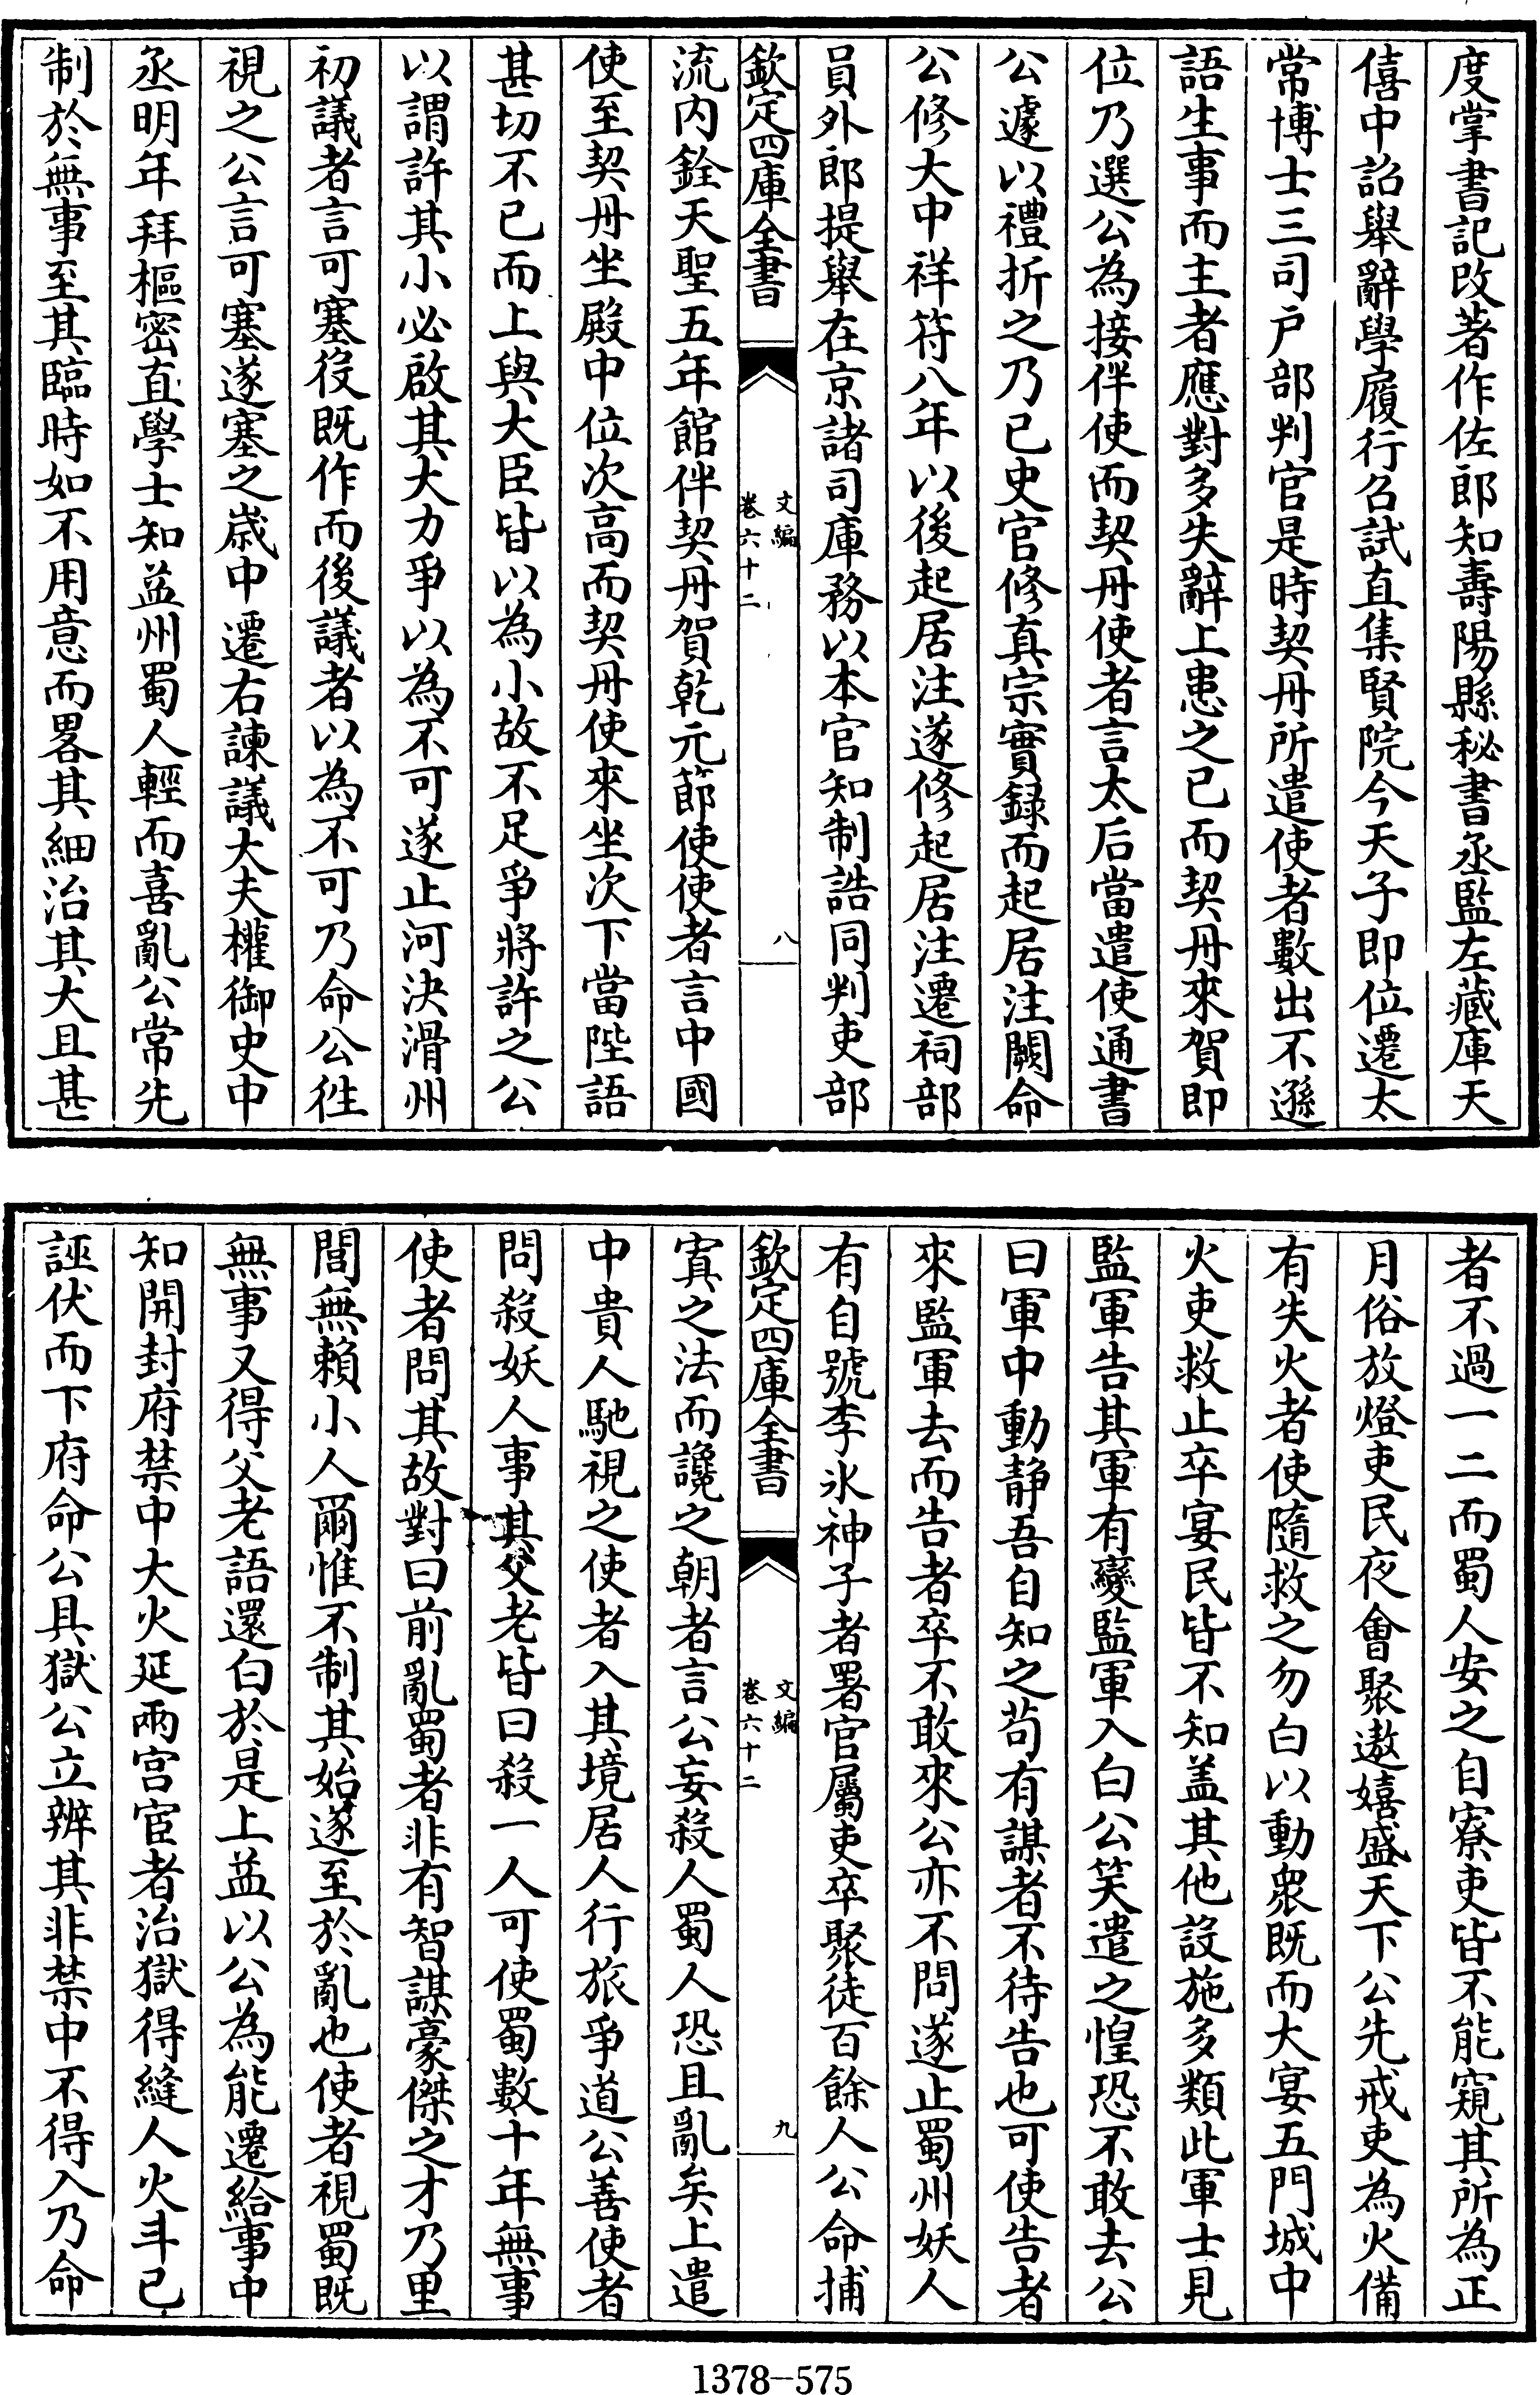 度掌書記改著作佐郎知壽陽縣秘書丞監左藏庫天
僖中詔舉辭學履行召試直集賢院今天子即位遷太
常博士三司户部判官是時契丹所遣使者數出不遜
語生事而主者應對多失辭上患之已而契丹來賀即
位乃選公為接伴使而契丹使者言太后當遣使通書
公遽以禮折之乃已史官修真宗實録而起居注闕命
公修大中祥符八年以後起居注遂修起居注遷祠部
員外郎提舉在京諸司庫務以本官知制誥同判吏部
欽定四庫全書
文編
卷六十二
八
流内銓天聖五年館伴契丹賀乾元節使使者言中國
使至契丹坐殿中位次高而契丹使來坐次下當陛語
甚切不已而上與大臣皆以為小故不足爭將許之公
以謂許其小必啟其大力爭以為不可遂止河決滑州
初議者言可塞役既作而後議者以為不可乃命公徃
視之公言可塞遂塞之嵗中遷右諫議大夫權御史中
丞明年拜樞密直學士知益州蜀人輕而喜亂公常先
制於無事至其臨時如不用意而畧其細治其大且甚
者不過一二而蜀人安之自寮吏皆不能窺其所為正
月俗放燈吏民夜會聚遨嬉盛天下公先戒吏為火備
有失火者使隨救之勿白以動衆既而大宴五門城中
火吏救止卒宴民皆不知盖其他設施多類此軍士見
監軍告其軍有變監軍入白公笑遣之惶恐不敢去公
曰軍中動静吾自知之苟有謀者不待告也可使告者
來監軍去而告者卒不敢來公亦不問遂止蜀州妖人
有自號李氷神子者署官屬吏卒聚徒百餘人公命捕
欽定四庫全書
文編
卷六十二
九
寘之法而讒之朝者言公妄殺人蜀人恐且亂矣上遣
中貴人馳視之使者入其境居人行旅爭道公善使者
問殺妖人事其父老皆曰殺一人可使蜀數十年無事
使者問其故對曰前亂蜀者非有智謀豪傑之才乃里
閭無賴小人爾惟不制其始遂至於亂也使者視蜀既
無事又得父老語還白於是上益以公為能遷給事中
知開封府禁中大火延兩宫宦者治獄得縫人火斗已
誣伏而下府命公具獄公立辨其非禁中不得入乃命
1378-575